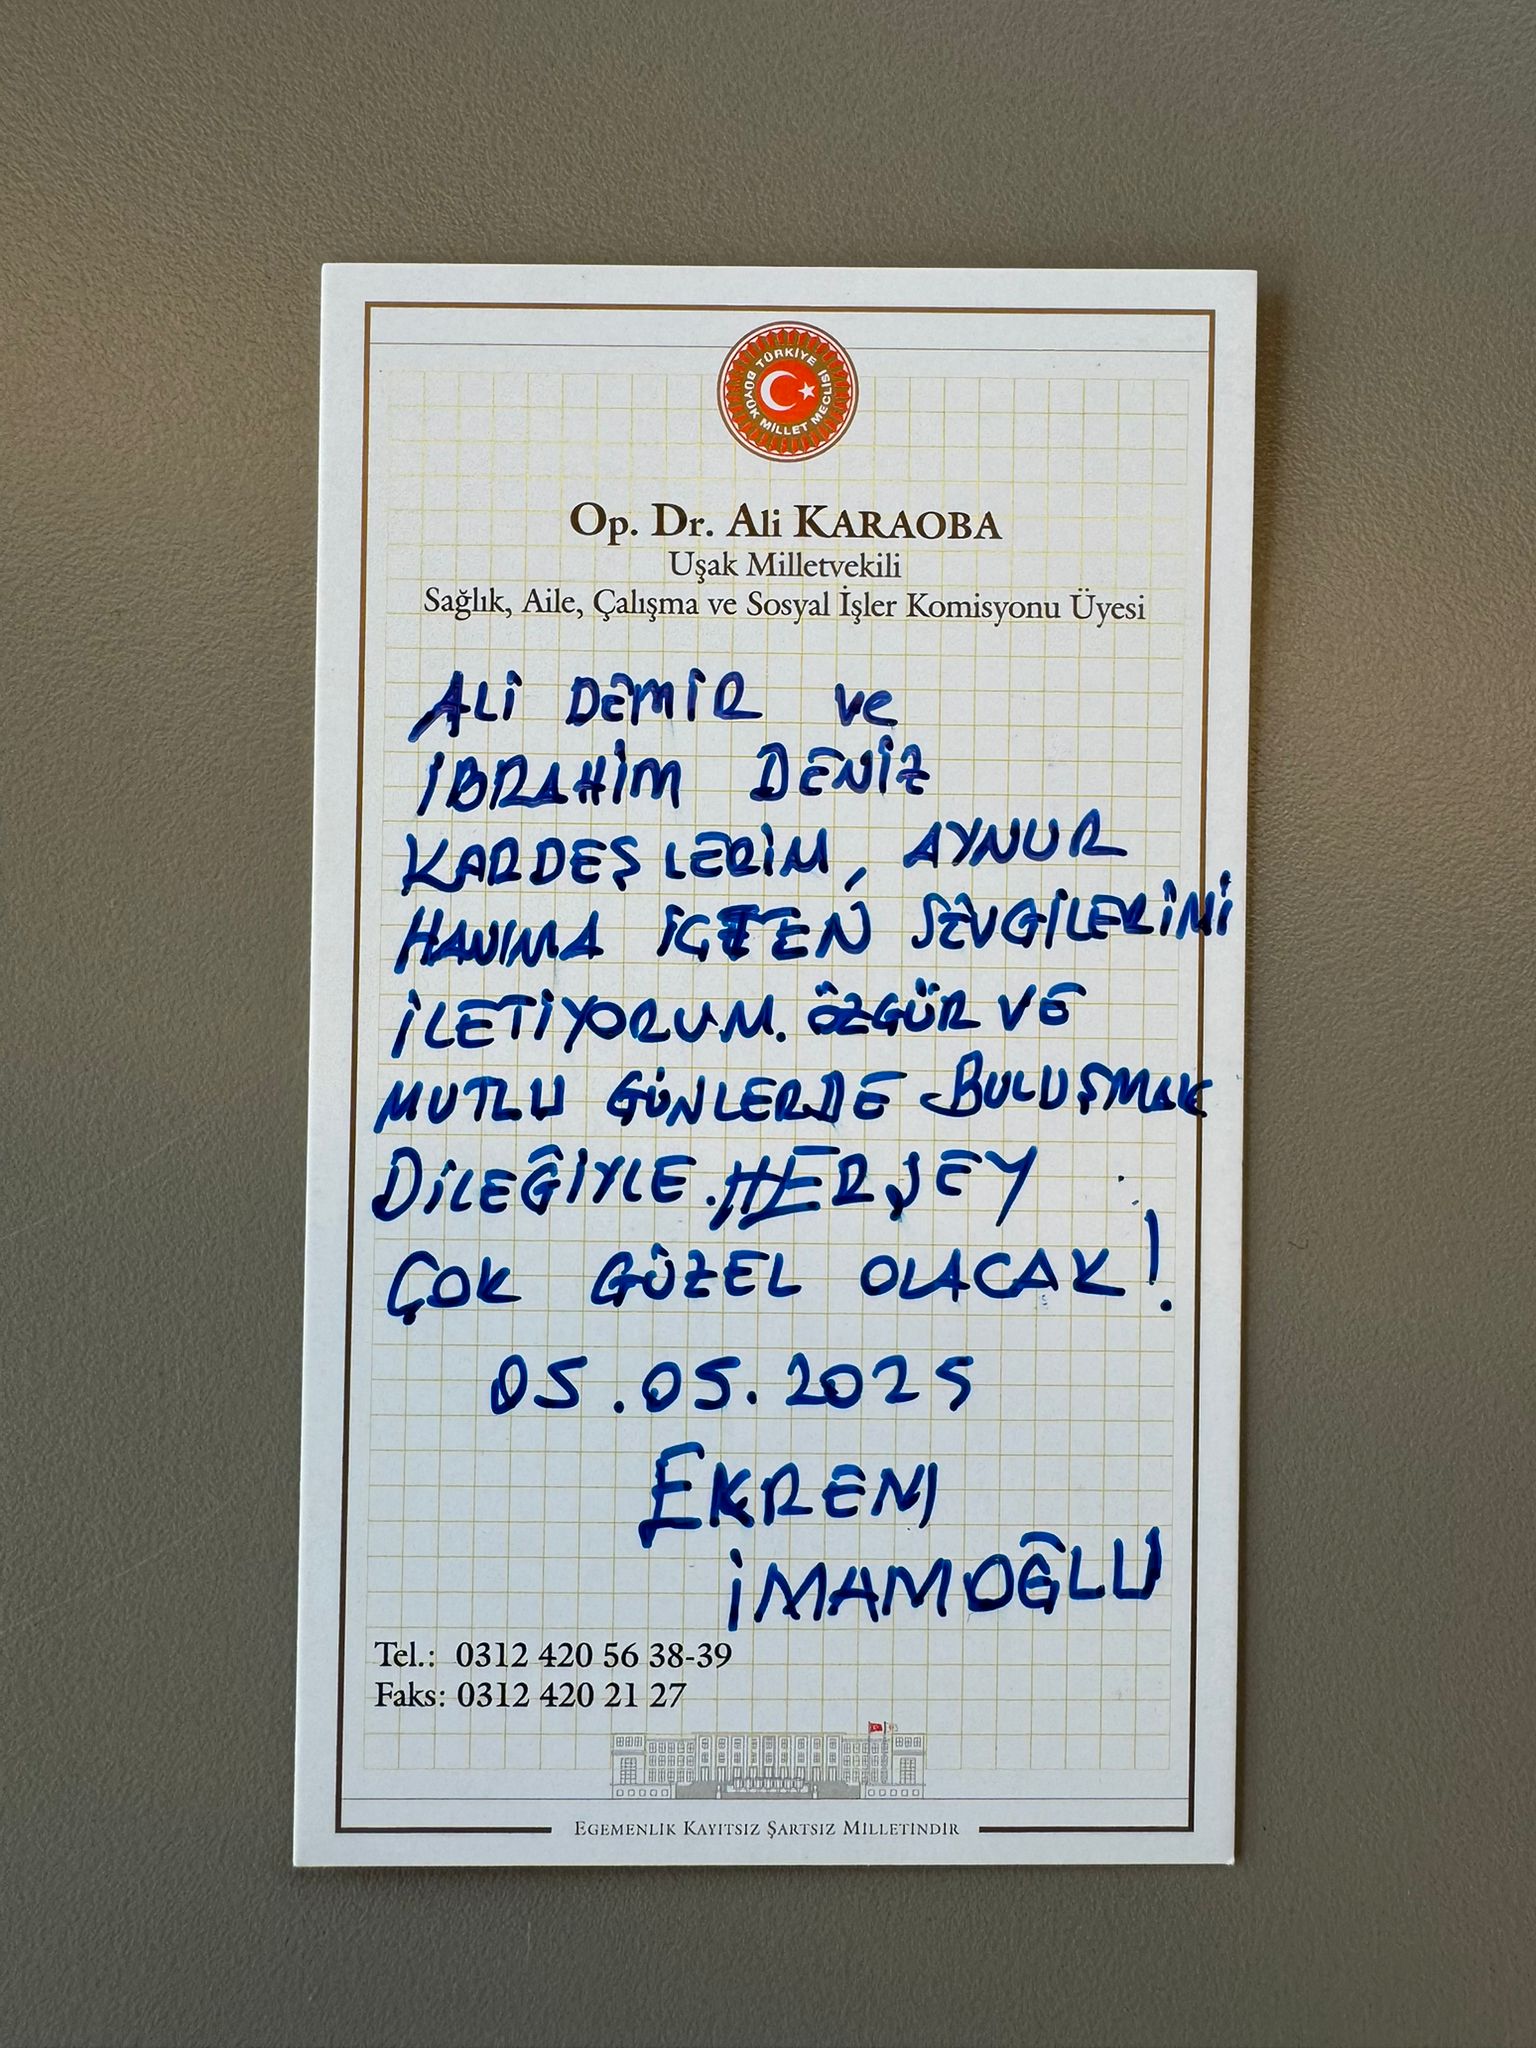 TÜRKİYE BÜYÜK MİLLET MECLİSİ
Op. Dr. Ali KARAOBA
Uşak Milletvekili
Sağlık, Aile, Çalışma ve Sosyal İşler Komisyonu Üyesi
ALİ DEMİR ve
İBRAHİM DENİZ
KARDEŞLERİM, AYNUR
HANIMA İÇTEN SEVGİLERİMİ
İLETİYORUM. ÖZGÜR VE
MUTLU GÜNLERDE BULUŞMAK
DİLEĞİYLE. HERŞEY
ÇOK GÜZEL OLACAK!
05.05.2025
EKREM
İMAMOĞLU
Tel.: 0312 420 56 38-39
Faks: 0312 420 21 27
EGEMENLİK KAYITSIZ ŞARTSIZ MİLLETİNDİR